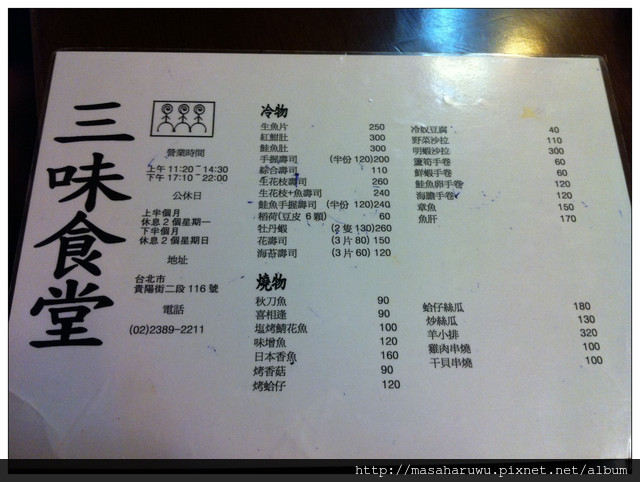 三味食堂
營業時間
上午 11:20 ~ 14:30
下午 17:10 ~ 22:00
公休日
上半個月
休息 2 個星期一
下半個月
休息 2 個星期日
地址
台北市
貴陽街二段 116 號
電話
(02)2389-2211
冷物
生魚片 250
紅魽肚 300
鮭魚肚 300
手握壽司 (半份 120)200
綜合壽司 110
生花枝壽司 260
生花枝+魚壽司 240
鮭魚手握壽司 (半份 120)240
稻荷(豆皮 6 顆) 60
牡丹蝦 (2 隻 130)260
花壽司 (3 片 80) 150
海苔壽司 (3 片 60) 120
冷奴豆腐 40
野菜沙拉 110
明蝦沙拉 300
蘆筍手卷 60
鮮蝦手卷 60
鮭魚卵手卷 120
海膽手卷 120
章魚 150
魚肝 170
燒物
秋刀魚 90
喜相逢 90
塩烤鯖花魚 100
味增魚 120
日本香魚 160
烤香菇 90
烤蛤仔 120
蛤仔絲瓜 180
炒絲瓜 130
羊小排 320
雞肉串燒 100
干貝串燒 100
http://masaharuwu.pixnet.net/album